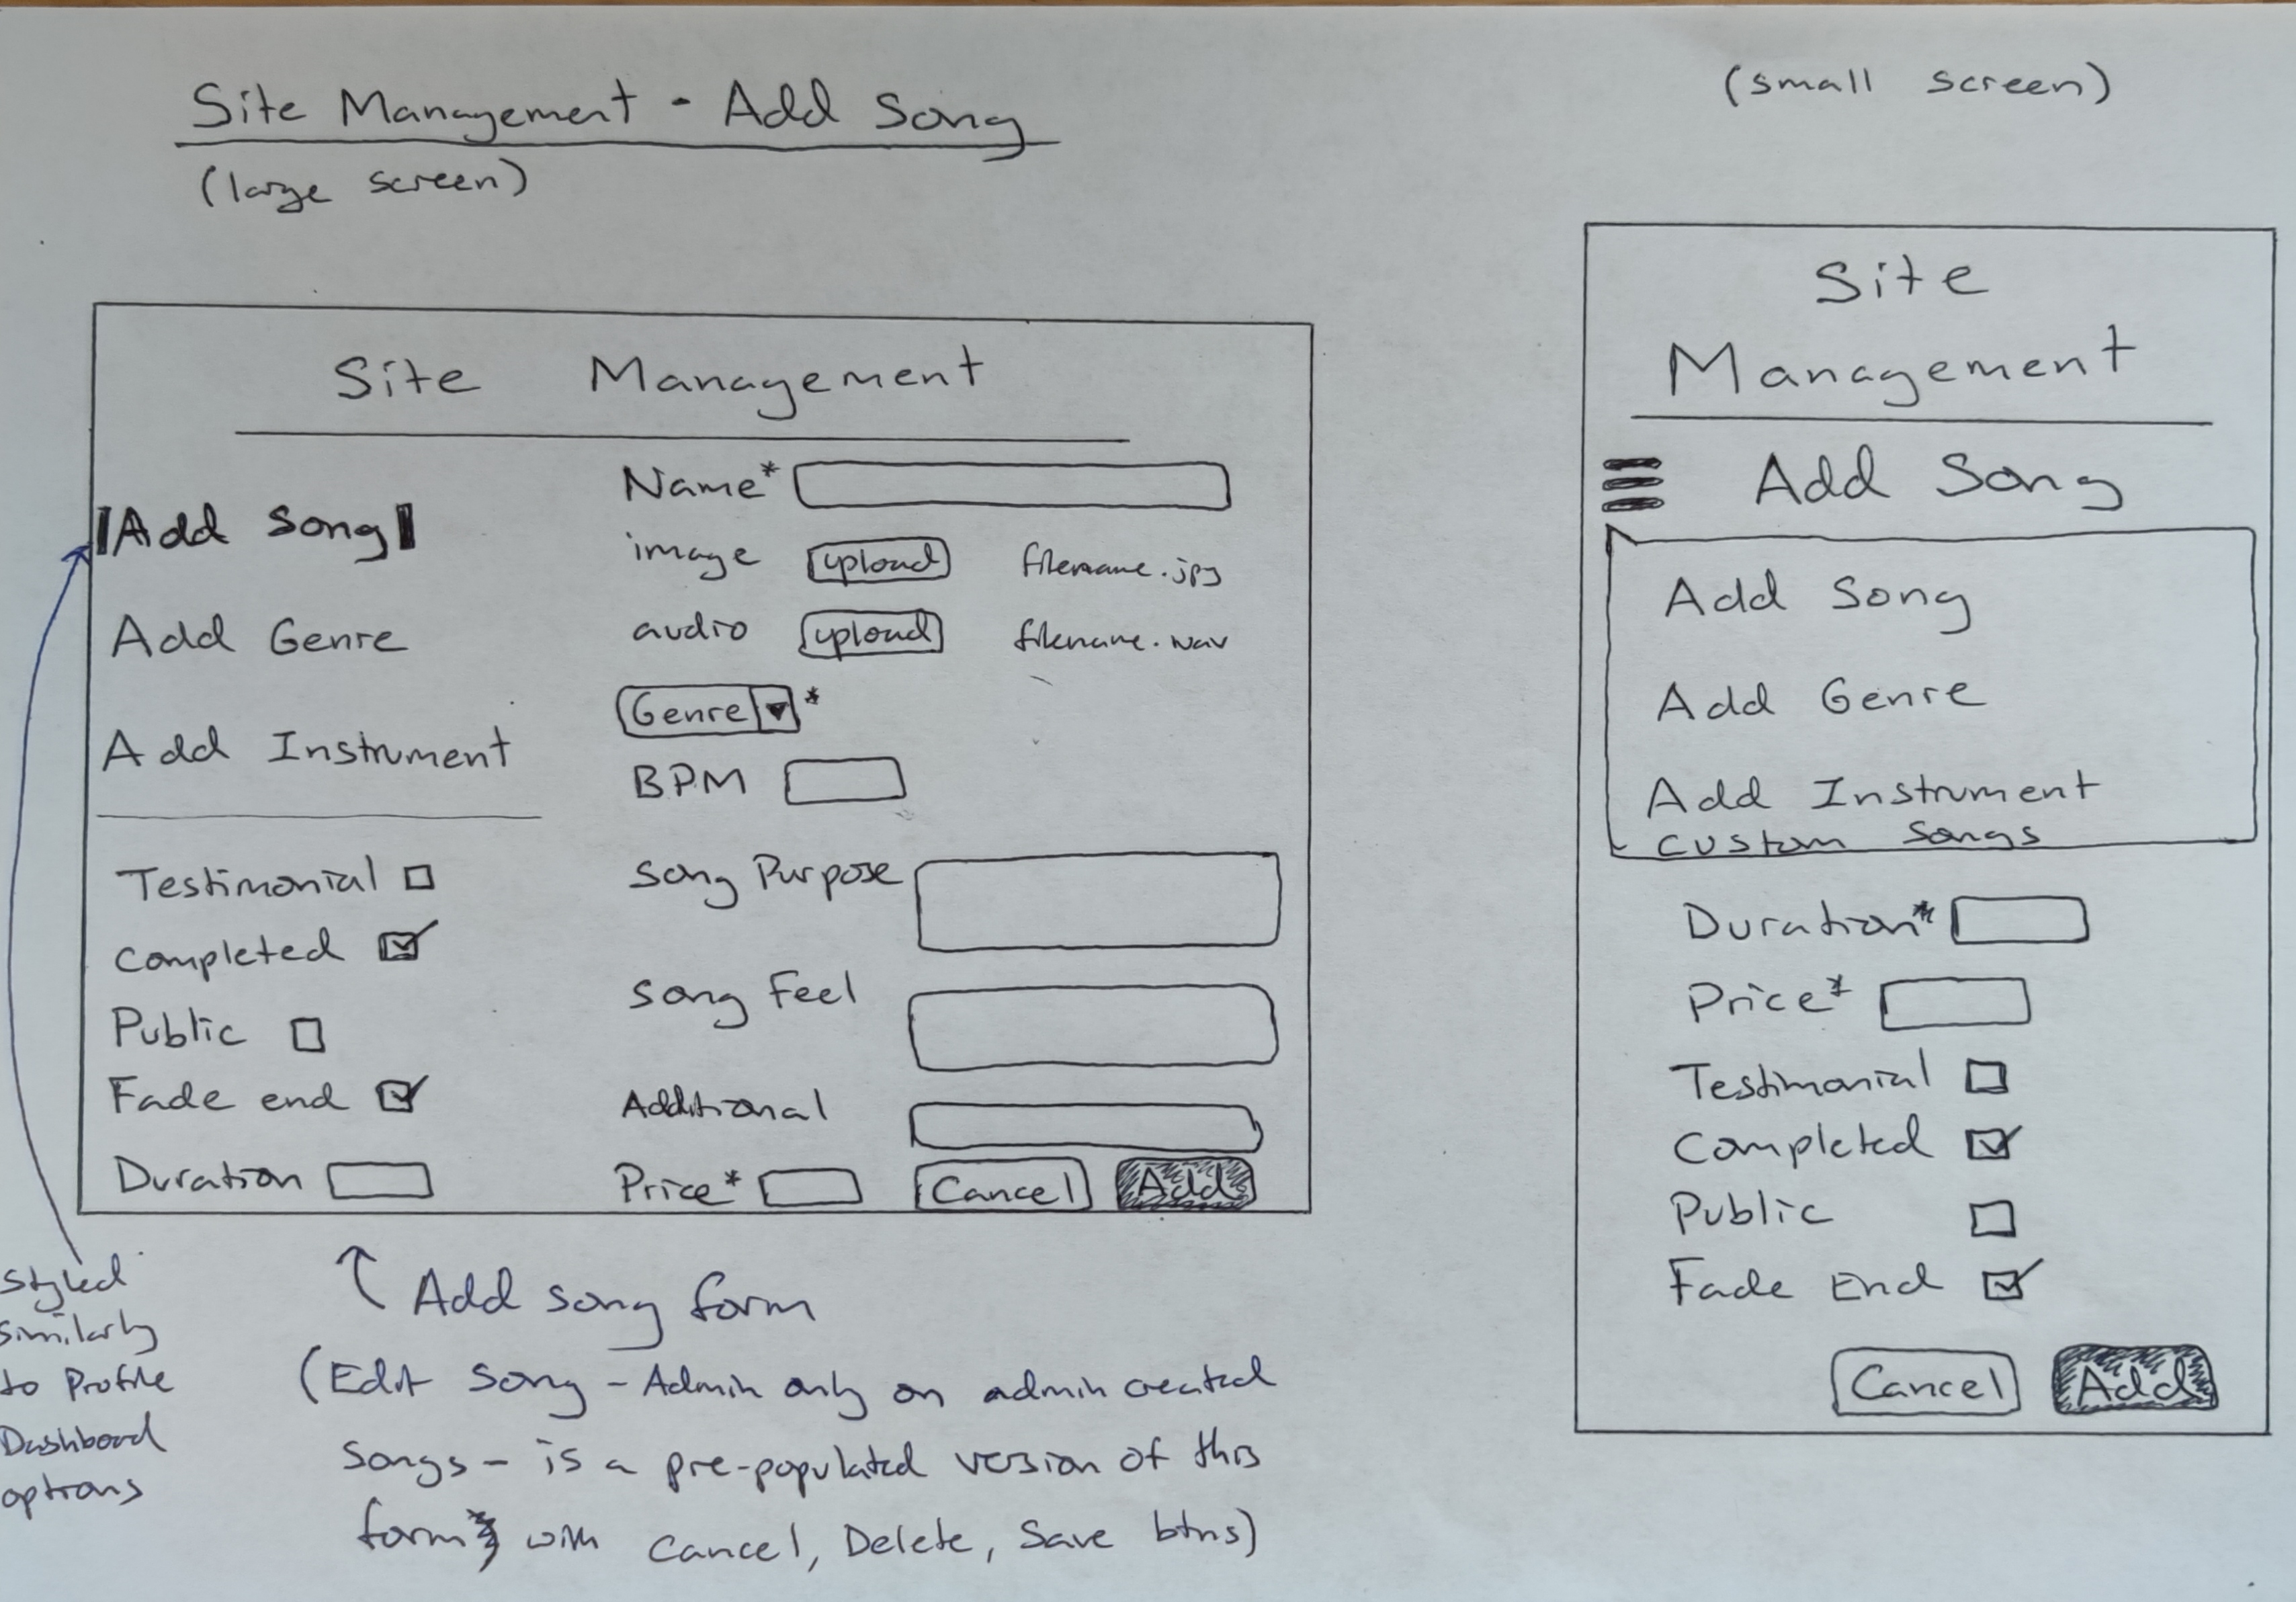 Site Management - Add Song
(large screen)
Site Management
Add Song
Add Genre
Add Instrument
Testimonial
Completed
Public
Fade end
Duration
Name*
image upload filename.jpg
audio upload filename.wav
Genre *
BPM
Song Purpose
Song Feel
Additional
Price* Cancel Add
Styled
similarly
to Profile
Dashboard
options
Add song form
(Edit Song - Admin only on admin created
songs - is a pre-populated version of this
form, with Cancel, Delete, Save btns)
(small screen)
Site
Management
Add Song
Add Song
Add Genre
Add Instrument
Custom Songs
Duration*
Price*
Testimonial
Completed
Public
Fade End
Cancel Add